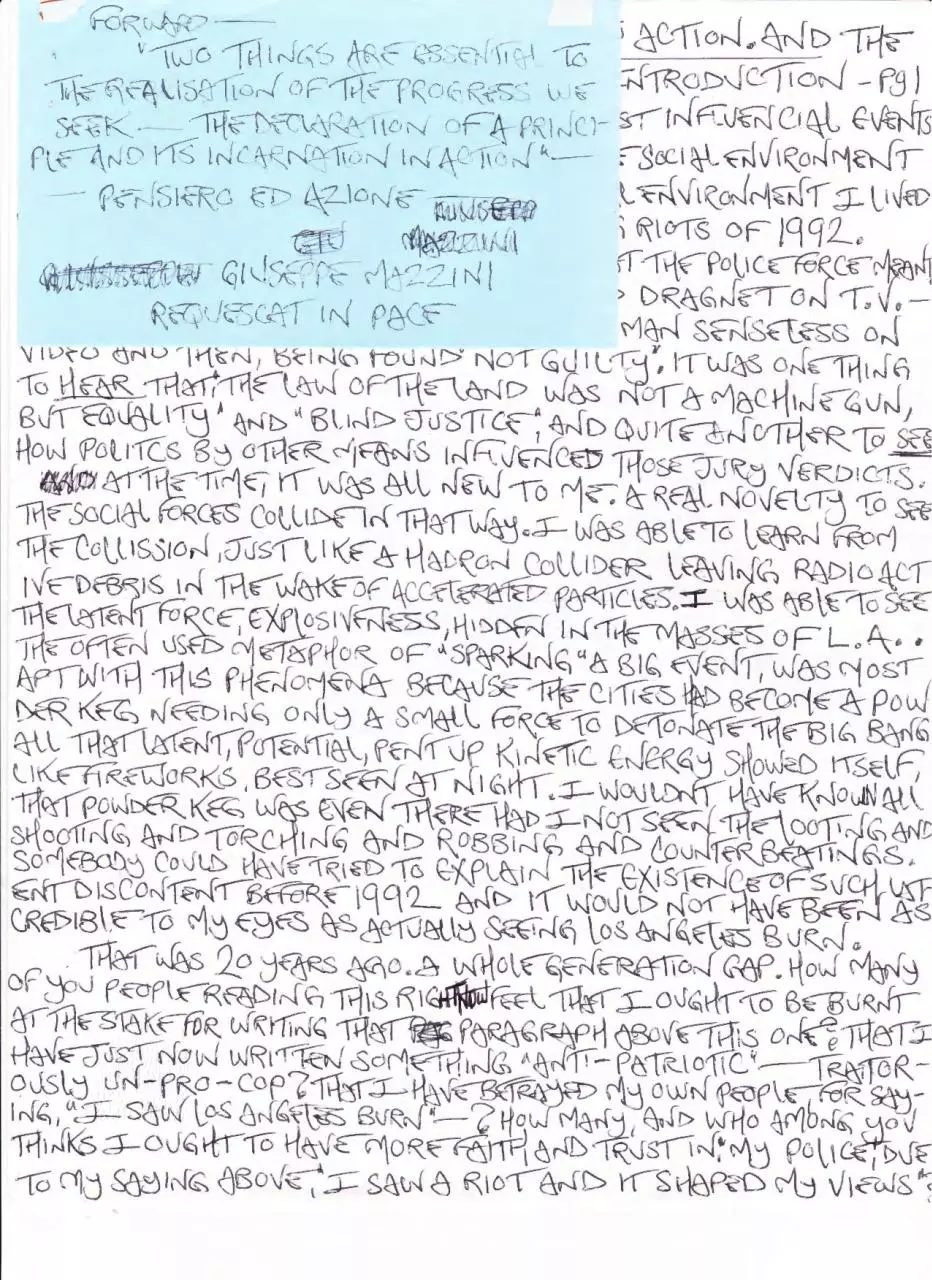 FORWARD —
"TWO THINGS ARE ESSENTIAL TO
THE REALISATION OF THE PROGRESS WE
SEEK — THE DECLARATION OF A PRINCI-
PLE AND ITS INCARNATION IN ACTION" —
— PENSIERO ED AZIONE
MAZZINI
GIUSEPPE MAZZINI
REQUESCAT IN PACE
ACTION. AND THE
INTRODUCTION - PG 1
ST INFLUENCIAL EVENTS
SOCIAL ENVIRONMENT
L ENVIRONMENT I LIVED
RIOTS OF 1992.
T THE POLICE FORCE MEANT
DRAGNET ON T.V. —
MAN SENSELESS ON
VIDEO AND THEN, BEING FOUND "NOT GUILTY". IT WAS ONE THING
TO HEAR THAT, "THE LAW OF THE LAND WAS NOT A MACHINE GUN,
BUT EQUALITY" AND "BLIND JUSTICE", AND QUITE ANOTHER TO SEE
HOW POLITCS BY OTHER MEANS INFLUENCED THOSE JURY VERDICTS.
AND AT THE TIME, IT WAS ALL NEW TO ME. A REAL NOVELTY TO SEE
THE SOCIAL FORCES COLLIDE IN THAT WAY. I WAS ABLE TO LEARN FROM
THE COLLISION, JUST LIKE A HADRON COLLIDER LEAVING RADIOACT
IVE DEBRIS IN THE WAKE OF ACCELERATED PARTICLES. I WAS ABLE TO SEE
THE LATENT FORCE, EXPLOSIVENESS, HIDDEN IN THE MASSES OF L.A..
THE OFTEN USED METAPHOR OF "SPARKING" A BIG EVENT, WAS MOST
APT WITH THIS PHENOMENA BECAUSE THE CITIES HAD BECOME A POW
DER KEG NEEDING ONLY A SMALL FORCE TO DETONATE THE BIG BANG
ALL THAT LATENT, POTENTIAL, PENT UP KINETIC ENERGY SHOWED ITSELF,
LIKE FIREWORKS, BEST SEEN AT NIGHT. I WOULDNT HAVE KNOWN ALL
THAT POWDER KEG WAS EVEN THERE HAD I NOT SEEN THE LOOTING AND
SHOOTING AND TORCHING AND ROBBING AND COUNTER BEATINGS.
SOMEBODY COULD HAVE TRIED TO EXPLAIN THE EXISTENCE OF SUCH LAT
ENT DISCONTENT BEFORE 1992 AND IT WOULD NOT HAVE BEEN AS
CREDIBLE TO MY EYES AS ACTUALLY SEEING LOS ANGELES BURN.
THAT WAS 20 YEARS AGO. A WHOLE GENERATION GAP. HOW MANY
OF YOU PEOPLE READING THIS RIGHT NOW FEEL THAT I OUGHT TO BE BURNT
AT THE STAKE FOR WRITING THAT PARAGRAPH ABOVE THIS ONE? THAT I
HAVE JUST NOW WRITTEN SOMETHING "ANTI-PATRIOTIC" — TRAITOR-
OUSLY UN-PRO-COP? THAT I HAVE BETRAYED MY OWN PEOPLE, FOR SAY-
ING, "I SAW LOS ANGELES BURN" —? HOW MANY, AND WHO AMONG YOU
THINKS I OUGHT TO HAVE MORE FAITH AND TRUST IN "MY POLICE", DUE
TO MY SAYING ABOVE, "I SAW A RIOT AND IT SHAPED MY VIEWS"?